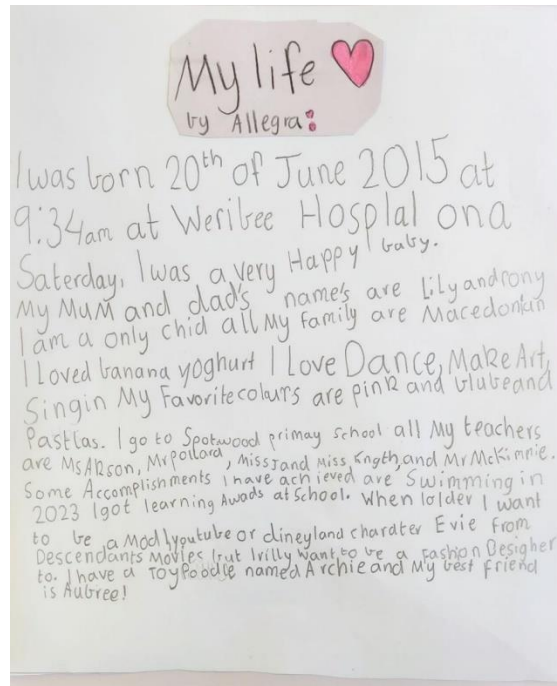 My life
by Allegra
I was born 20th of June 2015 at
9:34am at Weribee Hosplal ona
Saterday, I was a very Happy baby.
My MuM and dad's name's are Lily and rony
I am a only chid all My family are Macedonian
I Loved banana yoghurt I Love Dance, Make Art,
Singin My Favorite colours are pink and blube and
Pastlas. I go to Spotwood primay School all My teachers
are Ms ARson, Mr pollard, Miss J and Miss Kngth, and Mr McKimmie.
Some Accomplishments I have achieved are Swimming in
2023 I got learning Awads at School. When I older I want
to be a Modl youtube or dineyland charater Evie From
Descendants Movies but I rilly want to be a Fashion Desigher
to. I have a Toy Poodle named Archie and My best friend
is Aubree!